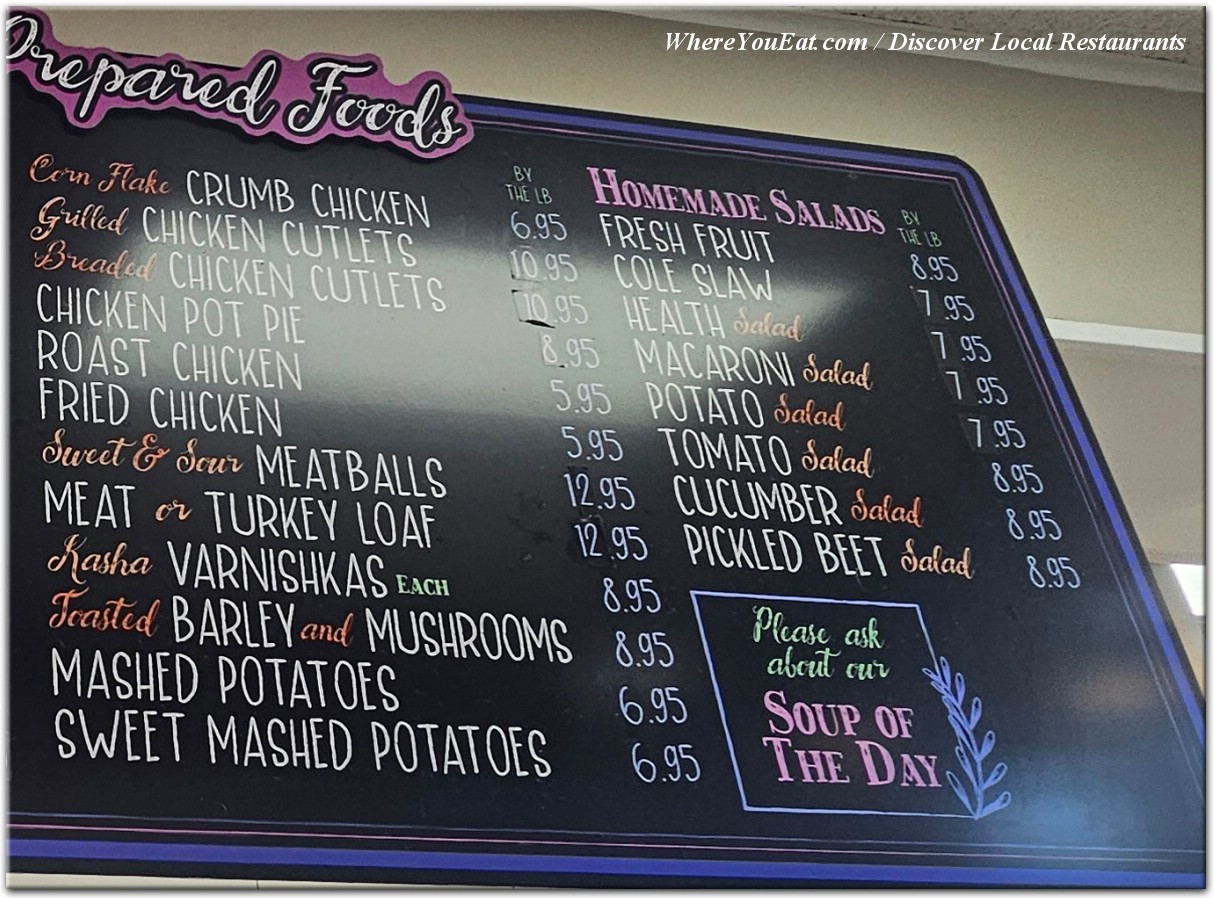 WhereYouEat.com / Discover Local Restaurants
Prepared Foods
BY
THE LB
Corn Flake CRUMB CHICKEN 6.95
Grilled CHICKEN CUTLETS 10.95
Breaded CHICKEN CUTLETS 10.95
CHICKEN POT PIE 8.95
ROAST CHICKEN 5.95
FRIED CHICKEN 5.95
Sweet & Sour MEATBALLS 12.95
MEAT or TURKEY LOAF 12.95
Kasha VARNISHKAS EACH 8.95
Toasted BARLEY and MUSHROOMS 8.95
MASHED POTATOES 6.95
SWEET MASHED POTATOES 6.95
HOMEMADE SALADS
BY
THE LB
FRESH FRUIT 8.95
COLE SLAW 7.95
HEALTH Salad 7.95
MACARONI Salad 7.95
POTATO Salad 7.95
TOMATO Salad 8.95
CUCUMBER Salad 8.95
PICKLED BEET Salad 8.95
Please ask
about our
SOUP OF
THE DAY